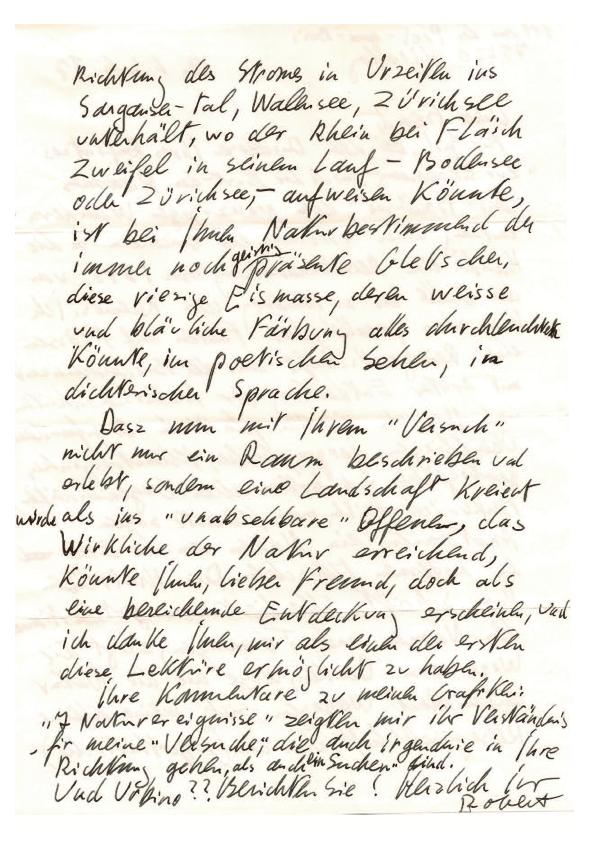 Richtung des Stromes in Urzeiten ins
Sarganser-Tal, Walensee, Zürichsee
unterhält, wo der Rhein bei Fläsch
Zweifel in seinem Lauf – Bodensee
oder Zürichsee, – aufweisen Könnte,
ist bei Ihnen Naturbestimmend der
immer noch geistig präsente Gletscher,
diese riesige Eismasse, deren weisse
und bläuliche Färbung alles durchleuchten
Könnte, im poetischen Sehen, in
dichterischer Sprache.
Dasz nun mit Ihrem "Versuch"
nicht nur ein Raum beschrieben und
erlebt, sondern eine Landschaft Kreiert
würde als ins "unabsehbare" Offene, das
Wirkliche der Natur erreichend,
Könnte Ihnen, lieber Freund, doch als
eine bereichernde Entdeckung erscheinen, und
ich danke Ihnen, mir als einem der ersten
diese Lektüre ermöglicht zu haben.
Ihre Kommentare zu meinen Grafiken:
"7 Naturereignisse" zeigten mir ihr Verständnis
für meine "Versuche", die auch irgendwie in Ihre
Richtung gehen, als auch ein "Suchen" sind.
Und Urbino?? Berichten Sie! Herzlich Ihr
Robert